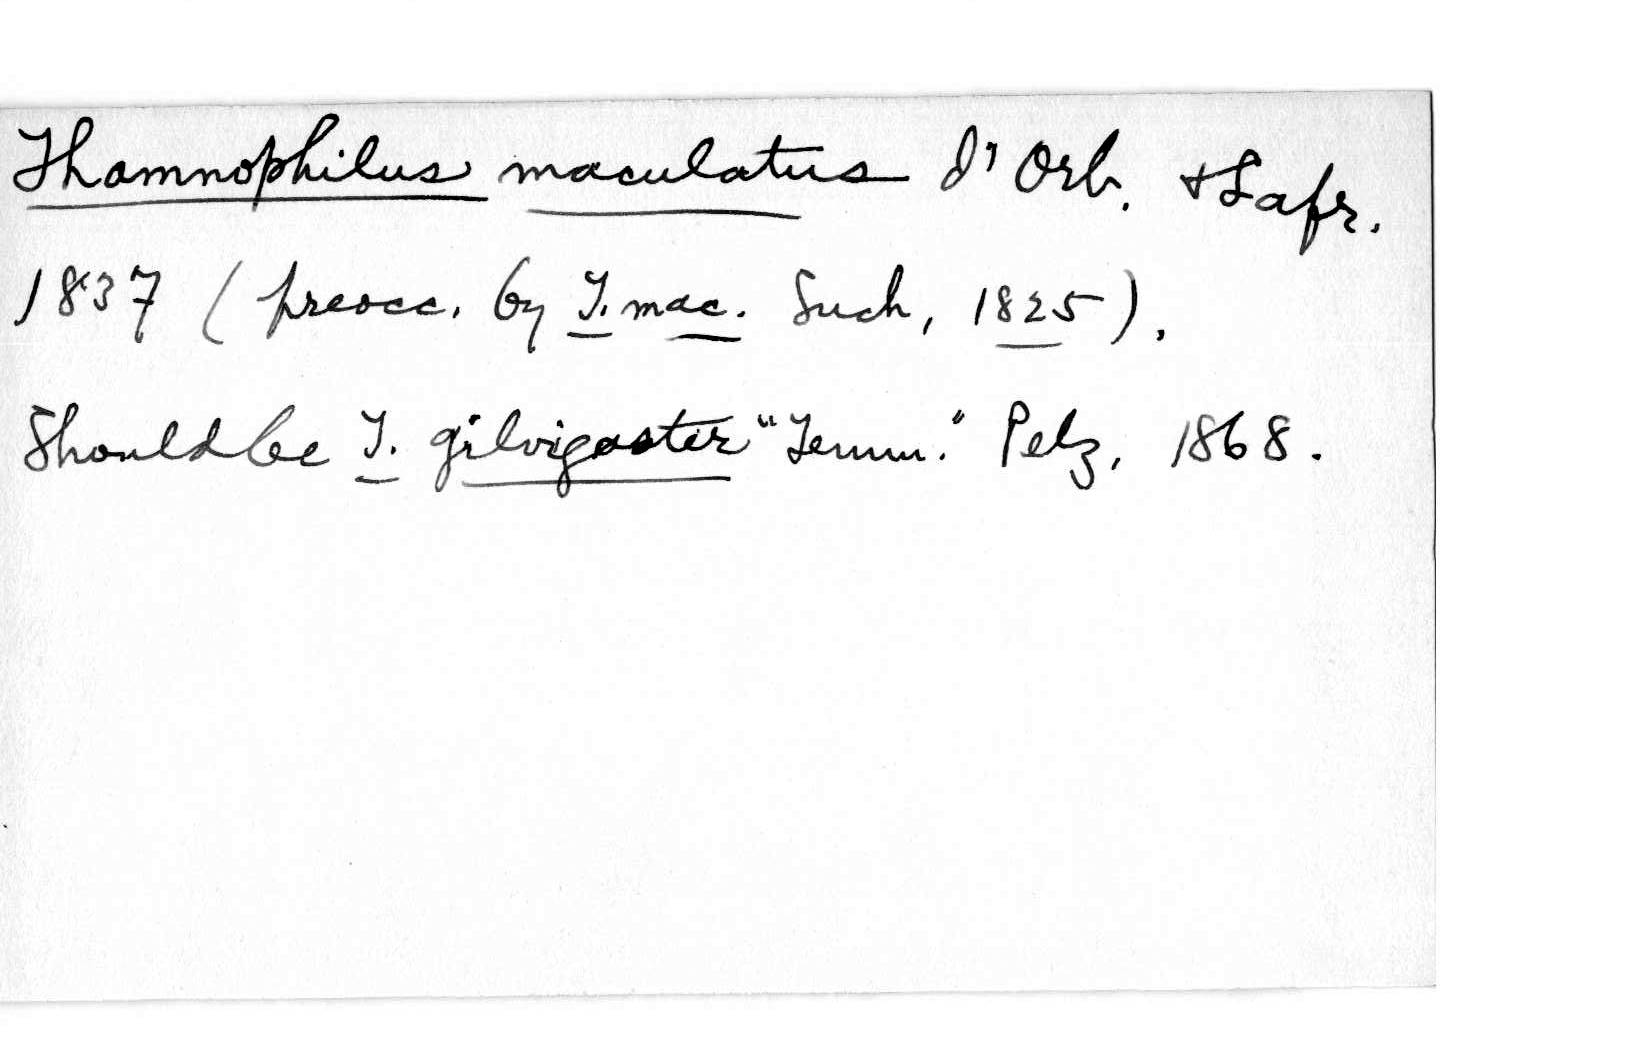 Thamnophilus maculatus d'Orb. & Lafr.
1837 (preocc. by T. mac. Such, 1825).
Should be T. gilvigaster "Temm." Pelz, 1868.